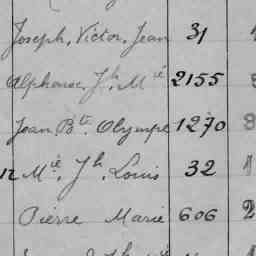 Joseph, Victor, Jean 31
Alphonse, Jh. Mie 2155
Jean Bte. Olympe 1270
12 Mie. Jh. Louis 32
Pierre Marie 606 2